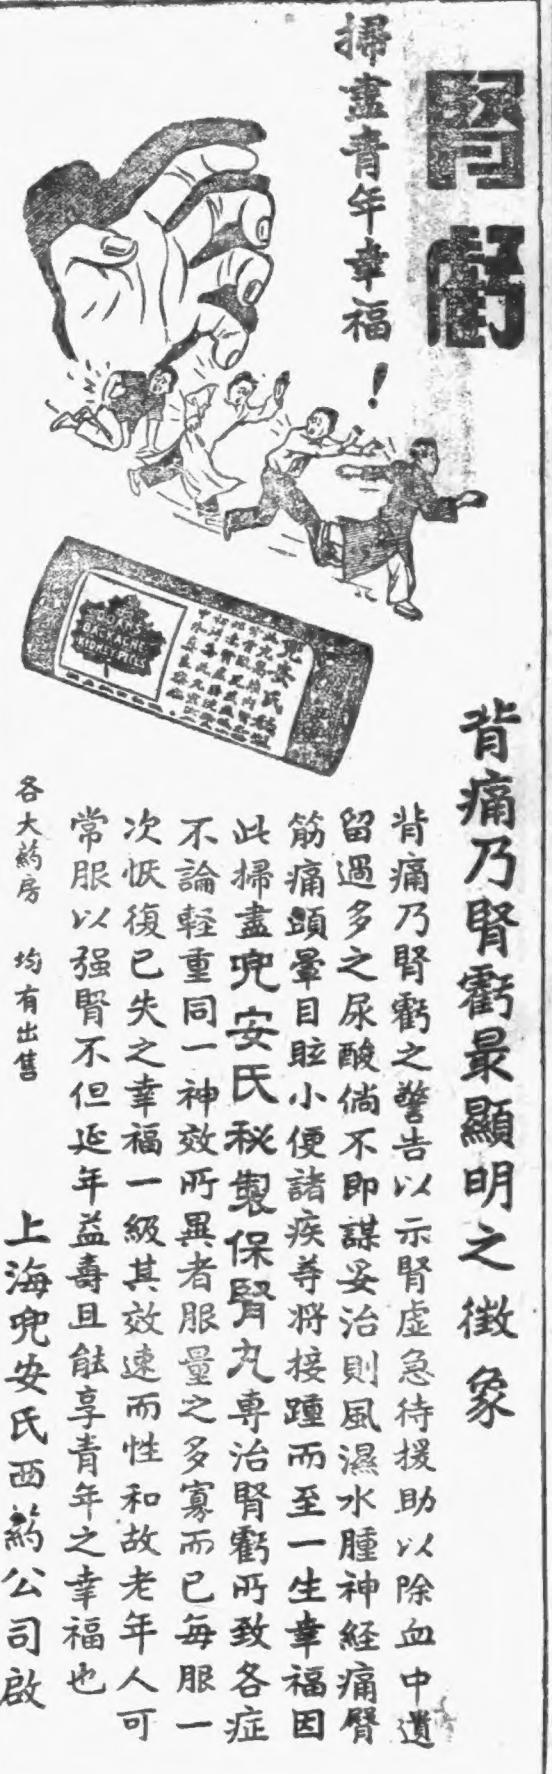 腎虧
掃盡青年幸福！
DOAN'S
BACKACHE
KIDNEY PILLS
兜安氏秘製
背痛乃腎虧最顯明之徵象
背痛乃腎虧之警告以示腎虛急待援助以除血中遺
留過多之尿酸倘不即謀妥治則風濕水腫神経痛臀
筋痛頭暈目眩小便諸疾等將接踵而至一生幸福因
此掃盡兜安氏秘製保腎丸專治腎虧所致各症
不論軽重同一神效所異者服量之多寡而已每服一
次恢復已失之幸福一級其效速而性和故老年人可
常服以强腎不但延年益壽且能享青年之幸福也
各大葯房 均有出售
上海兜安氏西葯公司啟